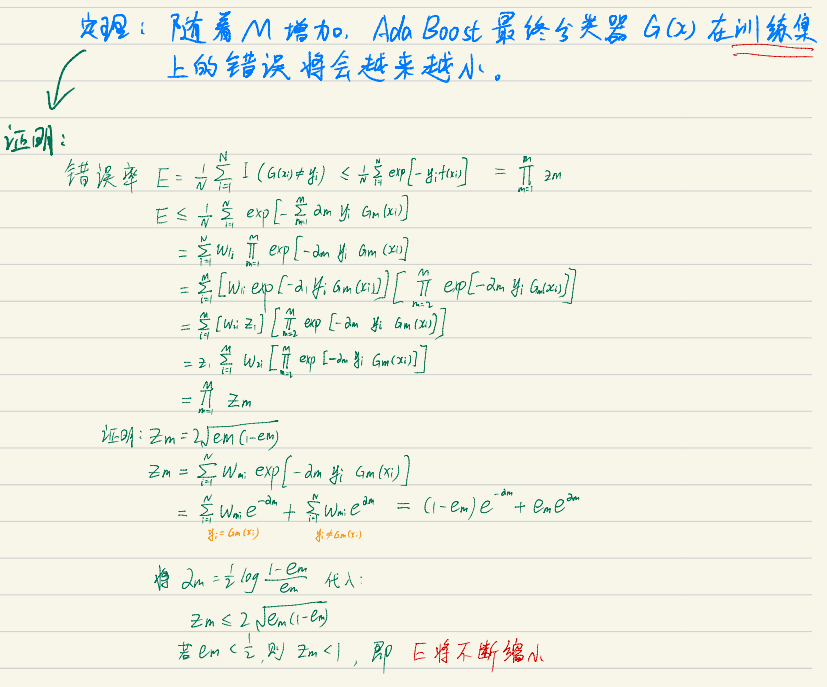 定理：随着 M 增加, Ada Boost 最终分类器 G(x) 在训练集
上的错误将会越来越小。
证明：
错误率 E = 1/N ∑_{i=1}^{N} I (G(xi) ≠ yi) ≤ 1/N ∑_{i=1}^{N} exp[-yi f(xi)] = ∏_{m=1}^{M} zm
E ≤ 1/N ∑_{i=1}^{N} exp[-∑_{m=1}^{M} αm yi Gm(xi)]
= ∑_{i=1}^{N} W1i ∏_{m=1}^{M} exp[-αm yi Gm(xi)]
= ∑_{i=1}^{M} [W1i exp[-α1 yi Gm(xi)]] [∏_{m=2}^{M} exp[-αm yi Gm(xi)]]
= ∑_{i=1}^{M} [W2i z1] [∏_{m=2}^{M} exp[-αm yi Gm(xi)]]
= z1 ∑_{i=1}^{M} W2i [∏_{m=2}^{M} exp[-αm yi Gm(xi)]]
= ∏_{m=1}^{M} Zm
证明: Zm = 2√(em(1-em))
Zm = ∑_{i=1}^{N} Wmi exp[-αm yi Gm(xi)]
= ∑_{i=1}^{N} Wmi e^{-αm} + ∑_{i=1}^{N} Wmi e^{αm} = (1-em) e^{-αm} + em e^{αm}
yi = Gm(xi) yi ≠ Gm(xi)
将 αm = 1/2 log (1-em)/em 代入:
Zm ≤ 2√(em(1-em))
若 em < 1/2, 则 Zm < 1, 即 E将不断缩小